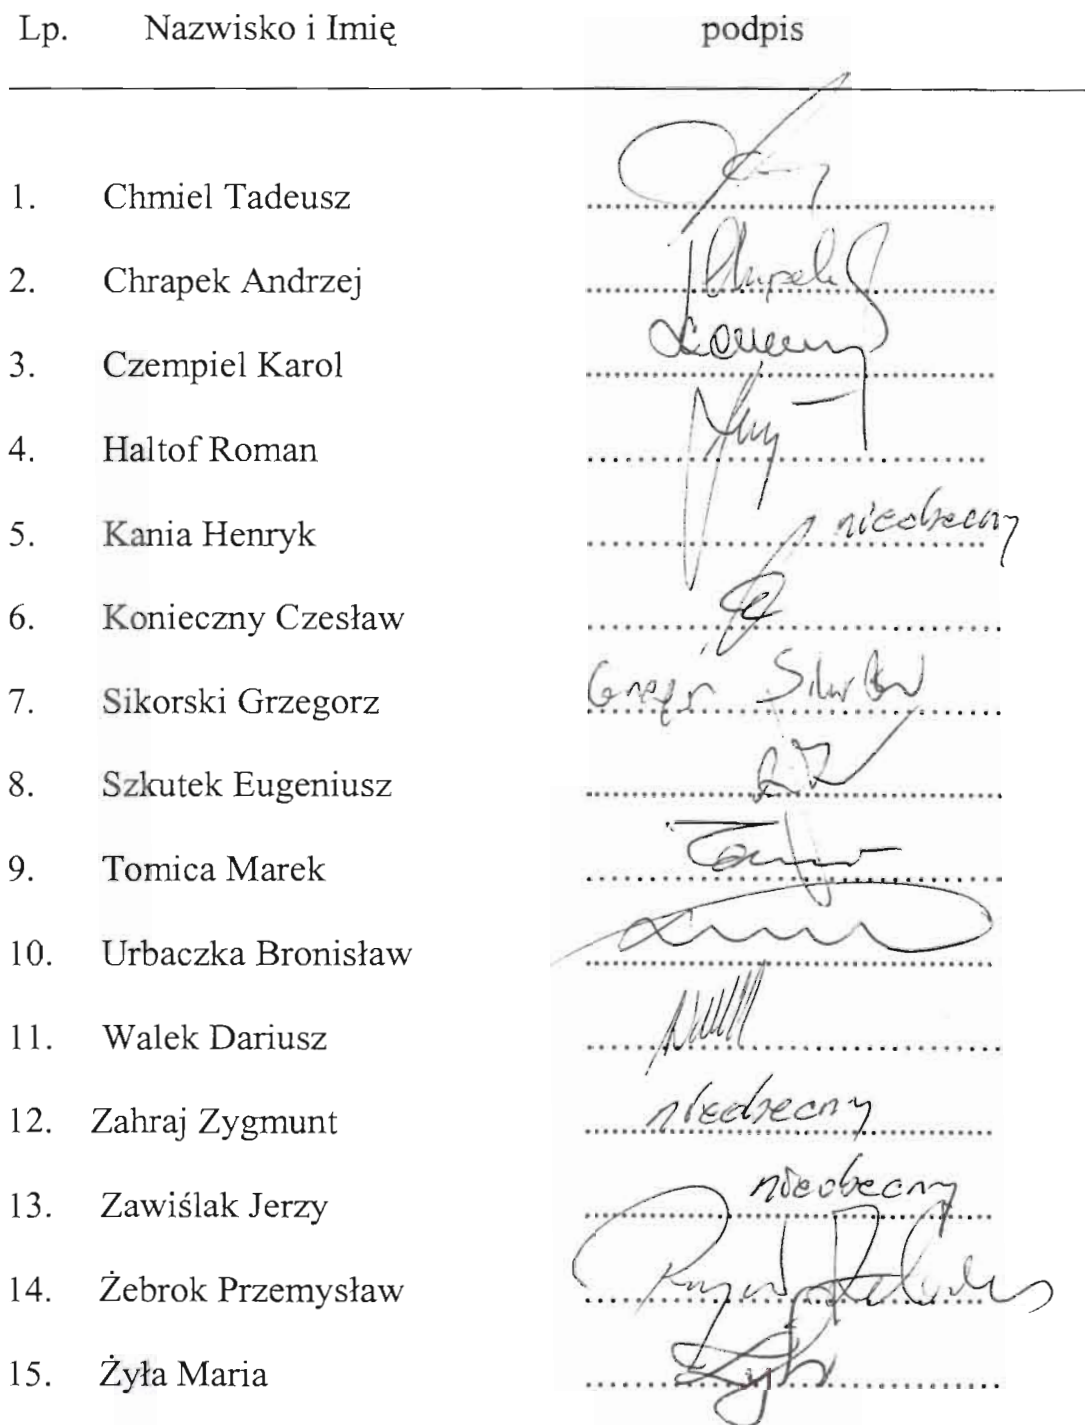 Lp. Nazwisko i Imię podpis
1. Chmiel Tadeusz
2. Chrapek Andrzej
3. Czempiel Karol
4. Haltof Roman
5. Kania Henryk nieobecny
6. Konieczny Czesław
7. Sikorski Grzegorz
8. Szkutek Eugeniusz
9. Tomica Marek
10. Urbaczka Bronisław
11. Walek Dariusz
12. Zahraj Zygmunt nieobecny
13. Zawiślak Jerzy nieobecny
14. Żebrok Przemysław
15. Żyła Maria